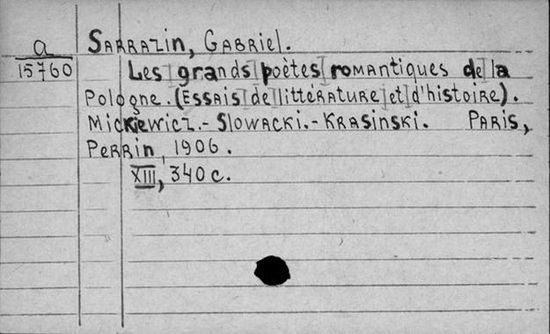 a
15760
SARRAZIN, GABRIEL.
Les grands poètes romantiques de la
Pologne. (Essais de littérature et d'histoire).
Mickiewicz.- Slowacki.- Krasinski. Paris,
Perrin, 1906.
XIII, 340 c.